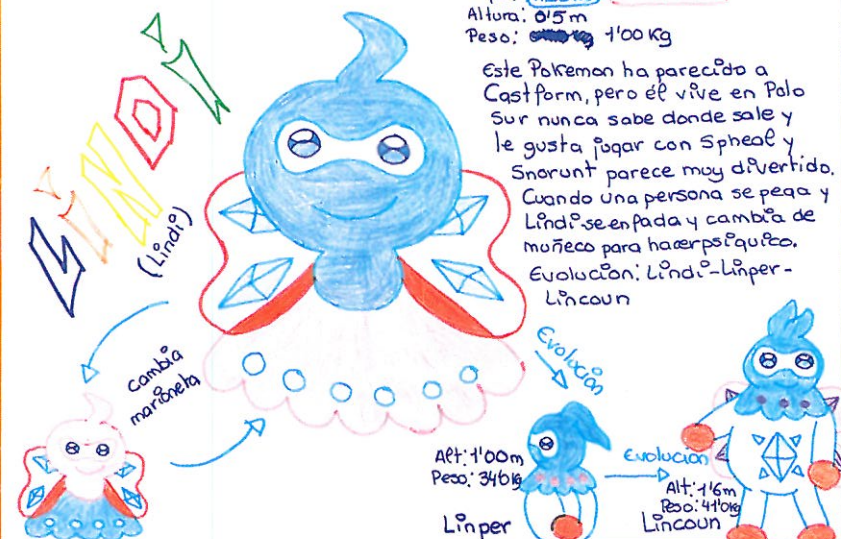 LINDI
(Lindi)
Altura: 0'5m
Peso: 1'00 Kg
Este Pokemon ha parecido a
Castform, pero él vive en Polo
Sur nunca sabe donde sale y
le gusta jugar con Spheal y
Snorunt parece muy divertido.
Cuando una persona se pega y
Lindi se enfada y cambia de
muñeco para hacer psiquico.
Evolucion: Lindi-Linper-
Lincoun
cambia
marioneta
Evolución
Alt: 1'00m
Peso: 346kg
Linper
Evolucion
Alt: 1'6m
Peso: 41'0kg
Lincoun